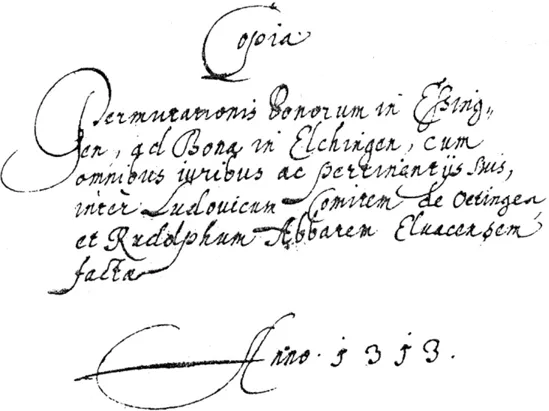 Copia
Permutationis bonorum in Essing„
gen, ad Bona in Elchingen, cum
omnibus iuribus ac pertinentijs suis,
inter Ludovicum Comitem de Oetingen
et Rudolphum Abbatem Elvacensem
factae
Anno. 1313.